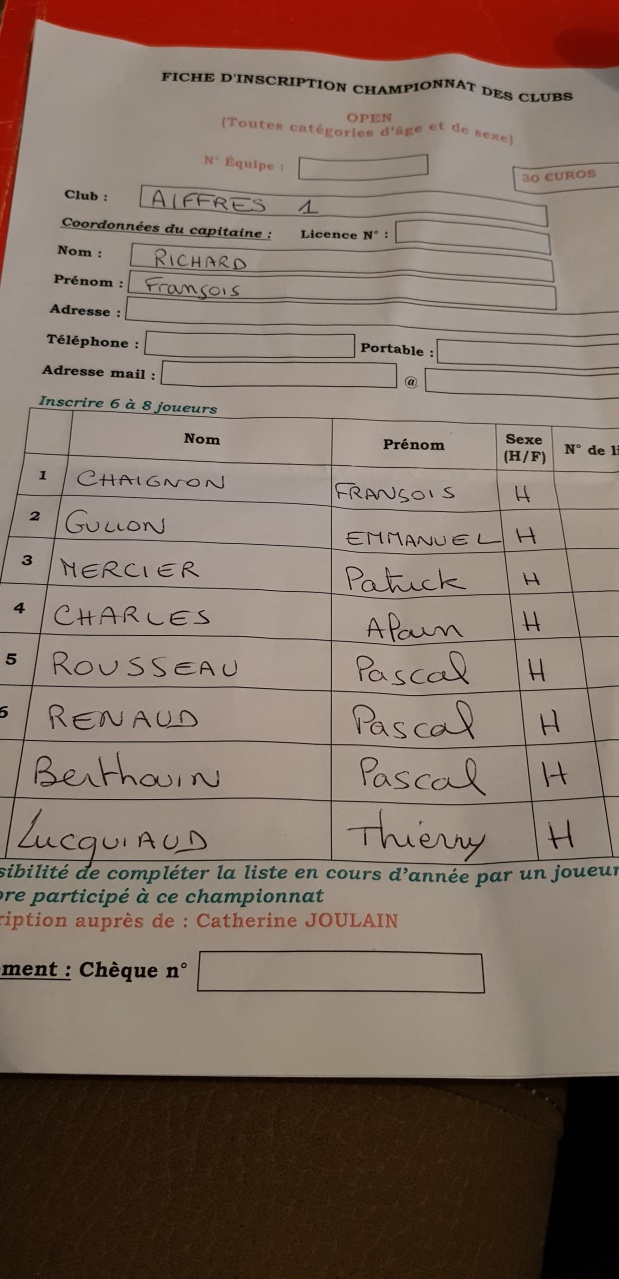 FICHE D'INSCRIPTION CHAMPIONNAT DES CLUBS
OPEN
(Toutes catégories d'âge et de sexe)
N° Équipe :
30 EUROS
Club : AIFFRES 1
Coordonnées du capitaine : Licence N° :
Nom : RICHARD
Prénom : François
Adresse :
Téléphone : Portable :
Adresse mail : @
Inscrire 6 à 8 joueurs
Nom Prénom Sexe (H/F) N° de li
1 CHAIGNON FRANSOIS H
2 GULLON EMMANUEL H
3 MERCIER Patrick H
4 CHARLES Alain H
5 ROUSSEAU Pascal H
6 RENAUD Pascal H
Berthouin Pascal H
LucquiAUD Thierry H
sibilité de compléter la liste en cours d'année par un joueur
ore participé à ce championnat
ription auprès de : Catherine JOULAIN
ment : Chèque n°